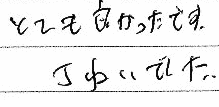 とても良かったです。
きれいでした。